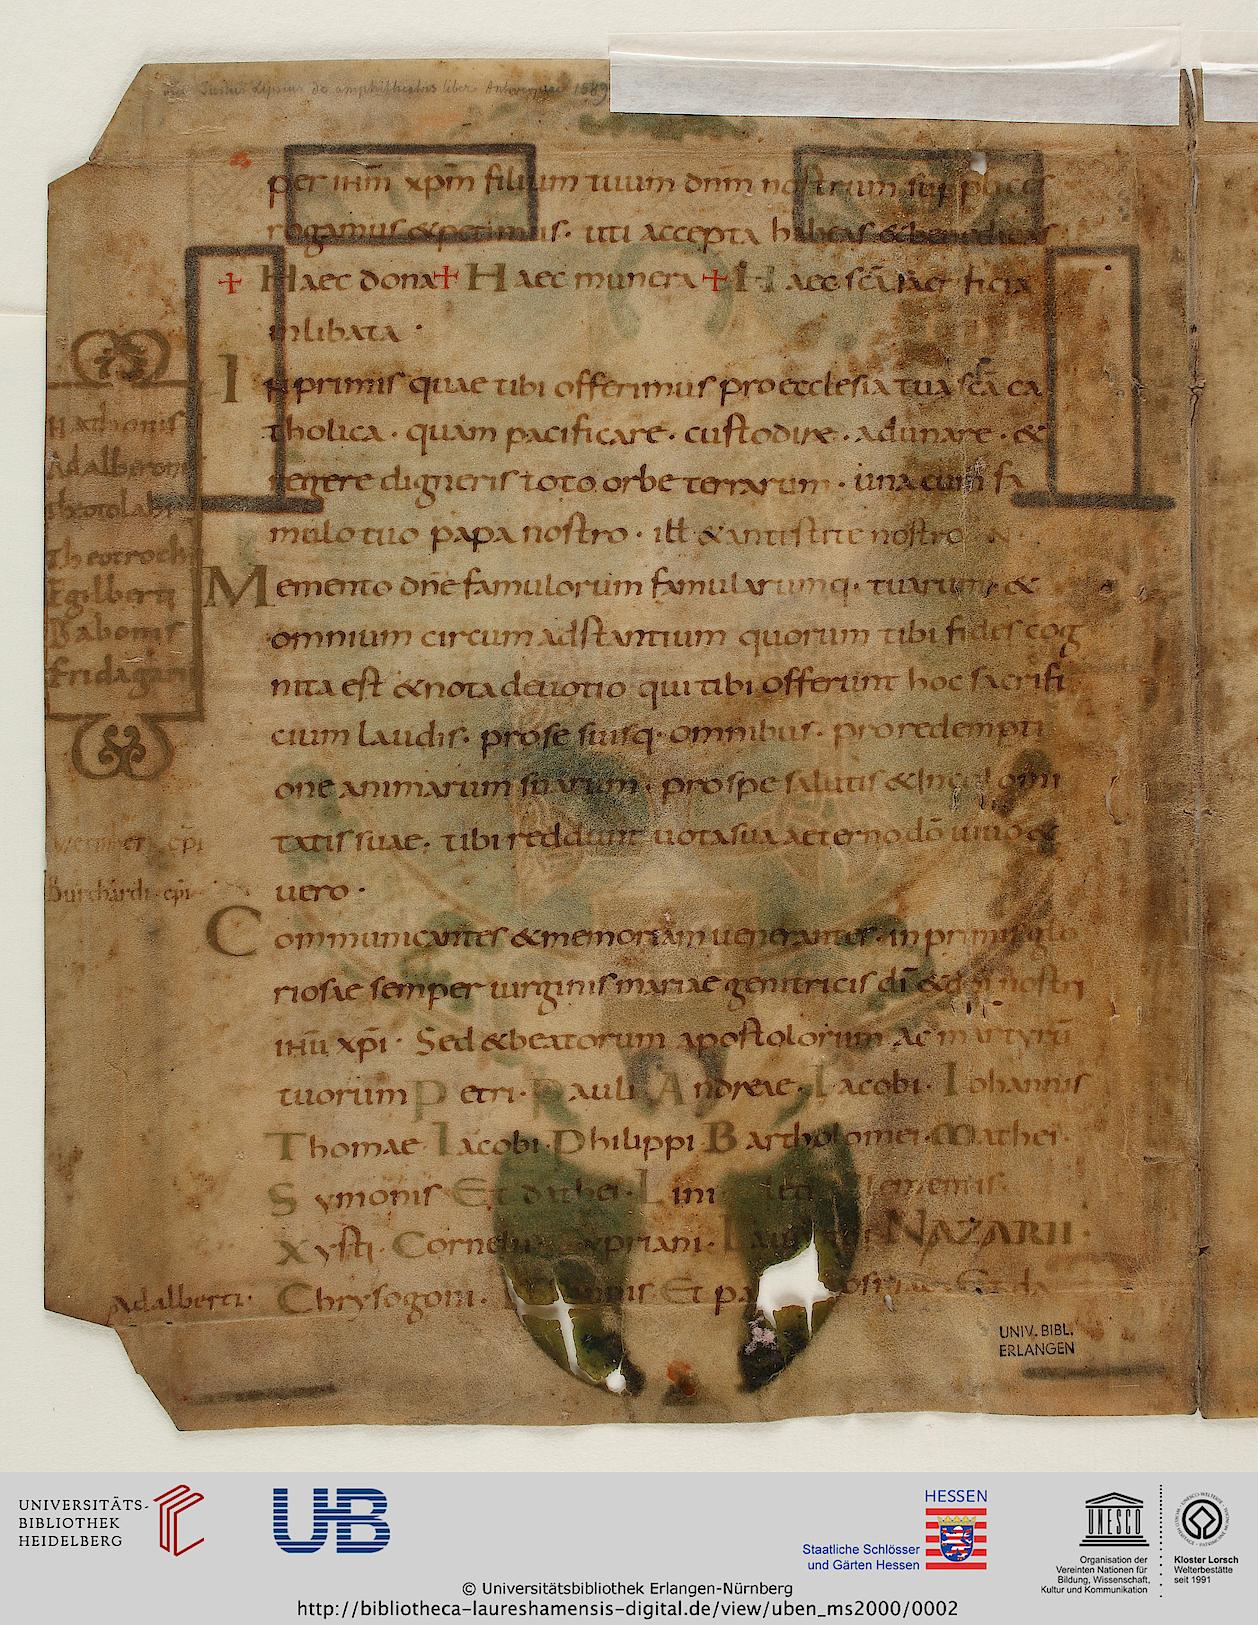 Justus Lipsius de amphitheatris liber Antverpiae 1589
per ihm xpm filium tuum dnm nostrum supplices
rogamus & petimus · uti accepta habeas & benedicas
+ Haec dona + Haec munera + Haec sca sacrificia
inlibata ·
In primis quae tibi offerimus pro ecclesia tua sca ca
tholica · quam pacificare · custodire · adunare · &
regere digneris toto orbe terrarum · una cum fa
mulo tuo papa nostro · ill & antistite nostro
Memento dne famulorum famularumq · tuarum · &
omnium circum adstantium quorum tibi fides cog
nita est & nota deuotio qui tibi offerunt hoc sacrifi
cium laudis · pro se suisq · omnibus · pro redempti
one animarum suarum · pro spe salutis & incolomi
tatis suae · tibi reddunt uota sua aeterno dō uiuo &
uero ·
Communicantes & memoriam uenerantes · in primis glo
riosae semper uirginis mariae genitricis dī & dni nostri
ihū xpī · Sed & beatorum apostolorum ac martyrū
tuorum Petri · Pauli Andreae · Iacobi · Iohannis
Thomae Iacobi · Philippi Bartholomei · Mathei ·
Symonis Et dathei · Lini Cleti Clementis ·
Xysti · Cornelii Cypriani · NAZARII ·
Chrysogoni · Et pa Et da
Hathonis
Adalberoni
Theotroch
Egilberti
Pabonis
Fridagari
Wernher epi
Burchardi · epi ·
Adalberti ·
UNIV. BIBL.
ERLANGEN
UNIVERSITÄTS-
BIBLIOTHEK
HEIDELBERG
UB
HESSEN
Staatliche Schlösser
und Gärten Hessen
UNESCO
Organisation der
Vereinten Nationen für
Bildung, Wissenschaft,
Kultur und Kommunikation
Kloster Lorsch
Welterbestätte
seit 1991
© Universitätsbibliothek Erlangen-Nürnberg
http://bibliotheca-laureshamensis-digital.de/view/uben_ms2000/0002